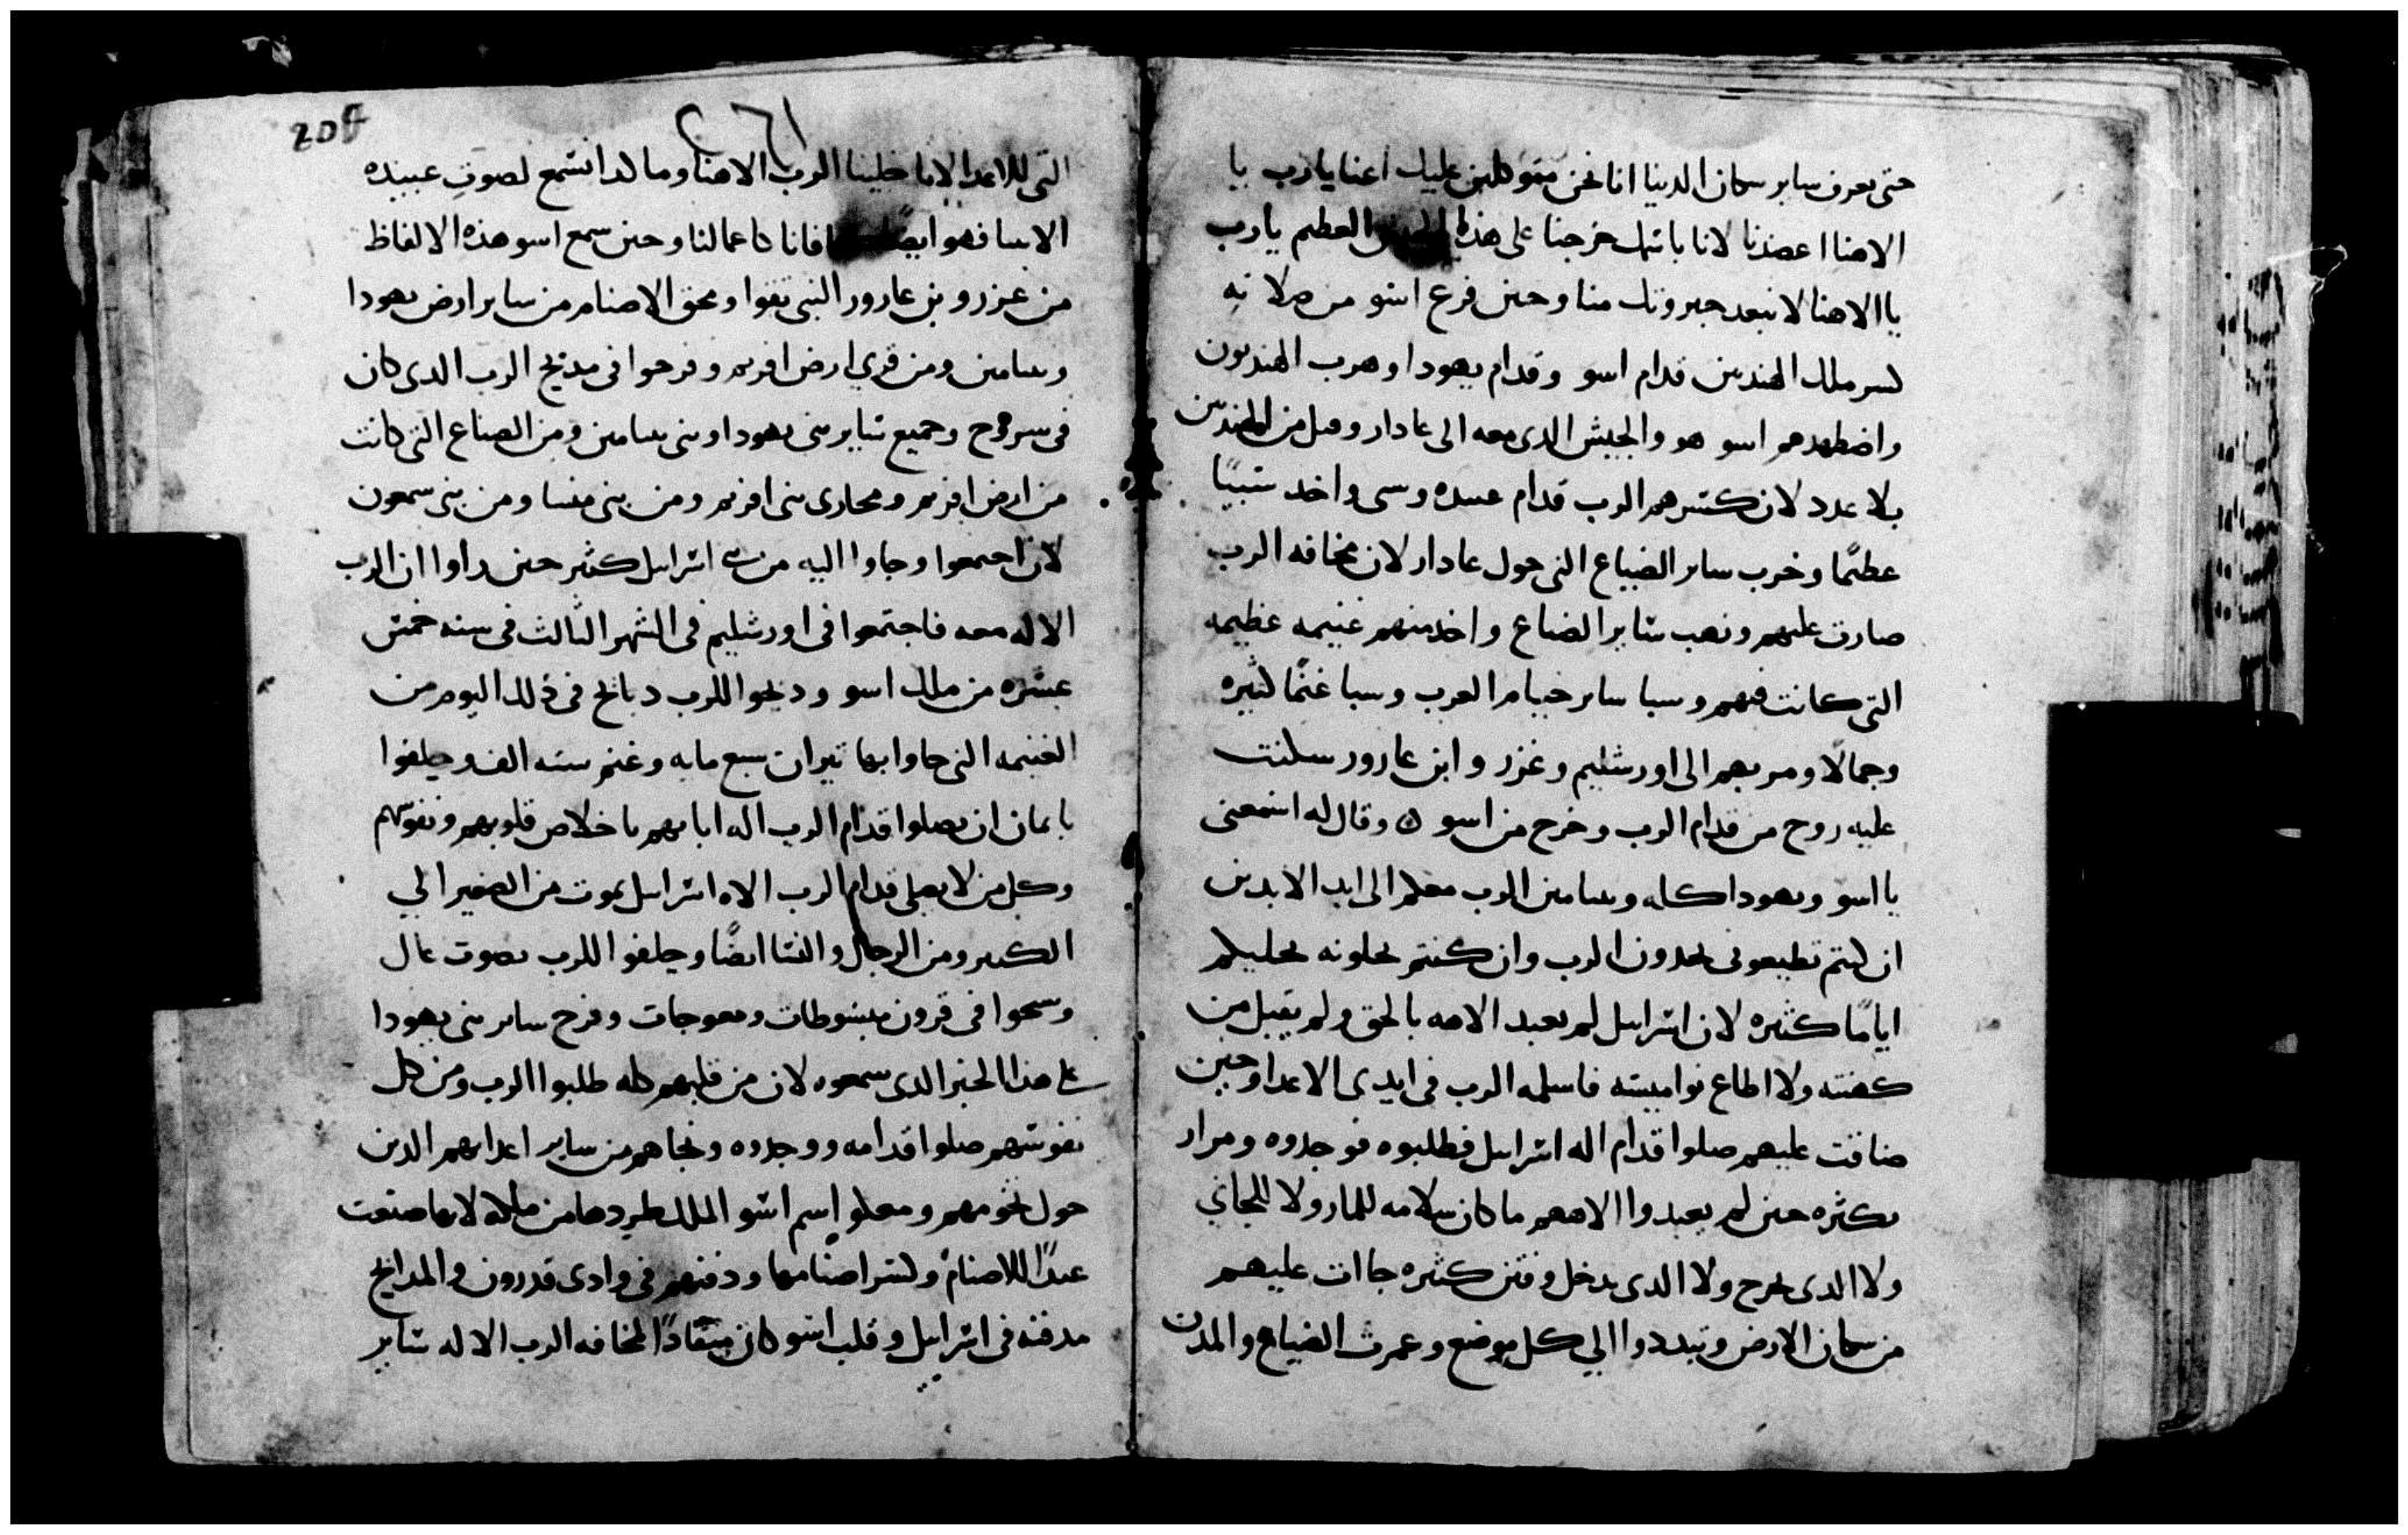 حتى يعرف ساير سكان الدنيا انا نحن متوكلين عليك اعنا يارب يا
الاهنا اعضدنا لانا باسمك خرجنا على هذا العظم يارب
يا الاهنا لا تبعد جبروتك منا وحين فرغ اسو من صلاته
كسر ملك الهنديين قدام اسو وقدام يهودا وهرب الهنديون
واضطهدهم اسو هو والجيش الدى معه الى عادار وقتل من الهنديين
بلا عدد لان كسرهم الرب قدام عبيده وسبى واخد سبيًا
عظيمًا وخرب ساير الضياع التى حول عادار لان مخافه الرب
صارت عليهم ونهب ساير الضياع واخد منهم غنيمه عظيمه
التى كانت فيهم وسبا ساير خيام العرب وسبا غنمًا كثيره
وجمالًا ومر بهم الى اورشليم وعزر وابن عارور سكنت
عليه روح من قدام الرب وخرج من اسو ه وقال له اسمعنى
يا اسو ويهودا كله وبنيامين الرب معكم الى ابد الابدين
ان كنتم تطيعونى تجدون الرب وان كنتم تخلونه يخليكم
ايامًا كثيره لان اسراييل لم يعبد الاهه بالحق ولم يقبل من
كهنته ولا اطاع نواميسه فاسلمه الرب فى ايدى الاعدا وحين
ضاقت عليهم صلوا قدام اله اسراييل فطلبوه فوجدوه ومرار
كثيره حين لم يعبدوا الاههم ما كان سلامه للمار ولا للجاى
ولا الدى يخرج ولا الدى يدخل وفتن كثيره جاات عليهم
من سكان الارض وتبددوا الي كل موضع وعمرت الضياع والمدن
205
التى للاعدا لانا خلينا الرب الاهنا وما لدا نسمع لصوت عبيده
الانبيا فهو ايضًا كافانا كاعمالنا وحين سمع اسو هذه الالفاظ
من عزرو بن عارور النبى تقوا ومحق الاصنام من ساير ارض يهودا
وبنيامين ومن قري ارض افريم وفرحوا فى مدبح الرب الدى كان
فى وجميع ساير بنى يهودا وبنى بنيامين ومن الضياع التى كانت
من ارض افريم ومحادى بنى افريم ومن بنى منسا ومن بنى سمعون
لان اجتمعوا وجاوا اليه من بنى اسراييل كثير حين راوا ان الرب
الاله معه فاجتمعوا فى اورشليم فى الشهر الثالث فى سنه خمس
عشره من ملك اسو ودبحوا للرب دبايح فى ذلك اليوم من
الغنيمه التى جاوا بها تيران سبع مايه وغنم سته الف وحلفوا
بايمان ان يصلوا قدام الرب اله ابايهم باخلاص قلوبهم ونفوسهم
وكل من لا يصلى قدام الرب الاه اسراييل يموت من الصغير الي
الكبير ومن الرجال والنسا ايضًا وحلفوا للرب بصوت عال
وسبحوا فى قرون مبسوطات ومعوجات وفرح ساير بنى يهودا
على هذا الخبر الدى سمعوه لان من قلبهم كله طلبوا الرب ومن كل
نفوسهم صلوا قدامه ووجدوه ونجاهم من ساير اعدايهم الدين
حول تخومهم ومعكو اسم اسو الملك طردها من ملكه لانها صنعت
عيدًا للاصنام وكسر اصنامها ودفنهم فى وادى قدرون والمدابح
مدفنه فى اسراييل وقلب اسو كان منقادًا لمخافه الرب الاله ساير